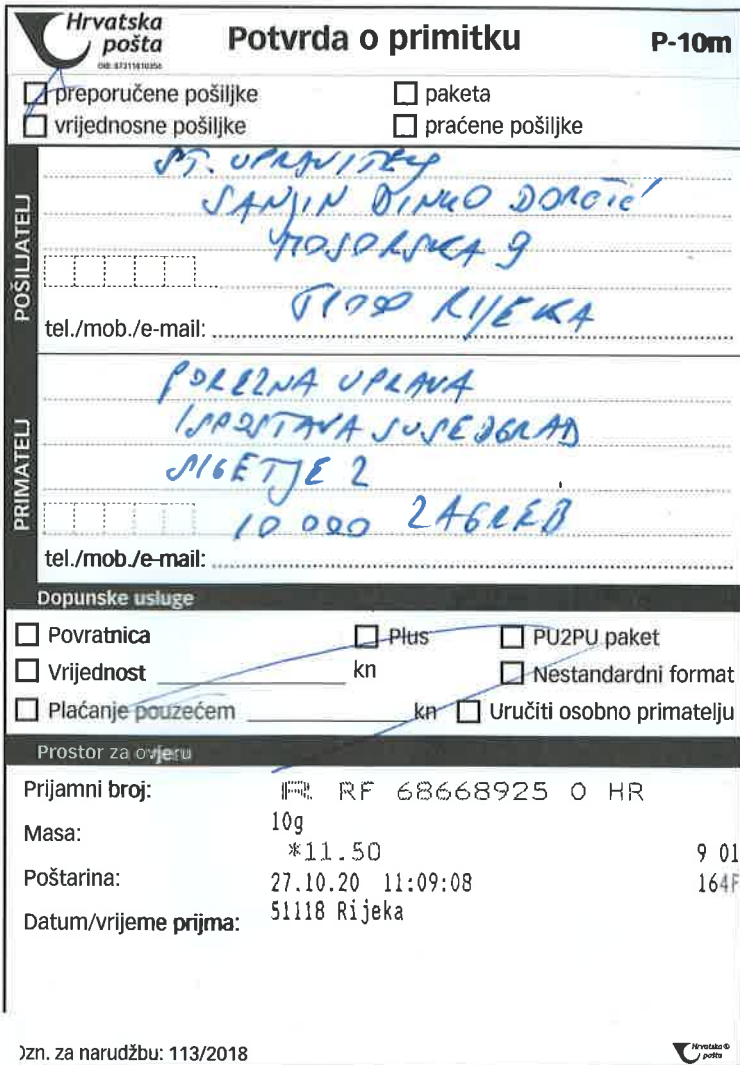 Hrvatska
pošta
OIB: 87311810356
Potvrda o primitku
P-10m
preporučene pošiljke
paketa
vrijednosne pošiljke
praćene pošiljke
POŠILJATELJ
ST. UPRAVITELJ
SANJIN DINKO DORČIĆ
MOSORSKA 9
51000 RIJEKA
tel./mob./e-mail:
PRIMATELJ
POREZNA UPRAVA
ISPOSTAVA SUSEDGRAD
SIGETJE 2
10 000 ZAGREB
tel./mob./e-mail:
Dopunske usluge
Povratnica
Plus
PU2PU paket
Vrijednost kn
Nestandardni format
Plaćanje pouzećem kn
Uručiti osobno primatelju
Prostor za ovjeru
Prijamni broj: R RF 68668925 0 HR
Masa: 10g
*11.50 9 01
Poštarina: 27.10.20 11:09:08 164F
Datum/vrijeme prijma: 51118 Rijeka
Ozn. za narudžbu: 113/2018
Hrvatska
pošta